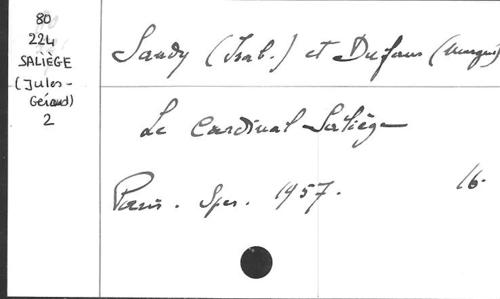 80
224
SALIÈGE
(Jules-
Géraud)
2
Sandy (Isab.) et Dufaur (Marquis)
Le Cardinal Saliège
Paris. Spes. 1957. 16.